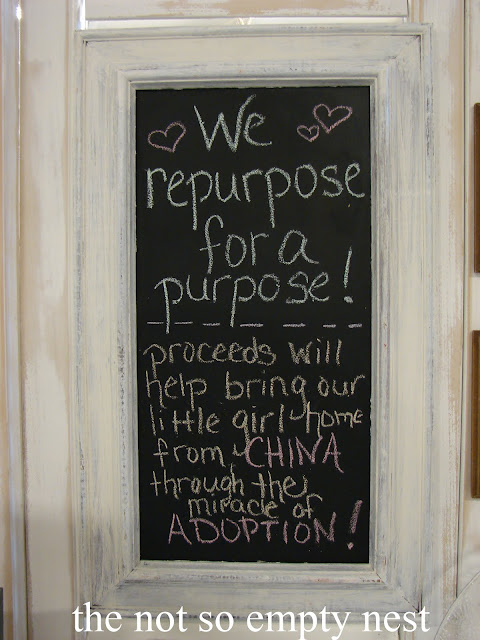 We
repurpose
for a
purpose!
proceeds will
help bring our
little girl home
from CHINA
through the
miracle of
ADOPTION!
the not so empty nest